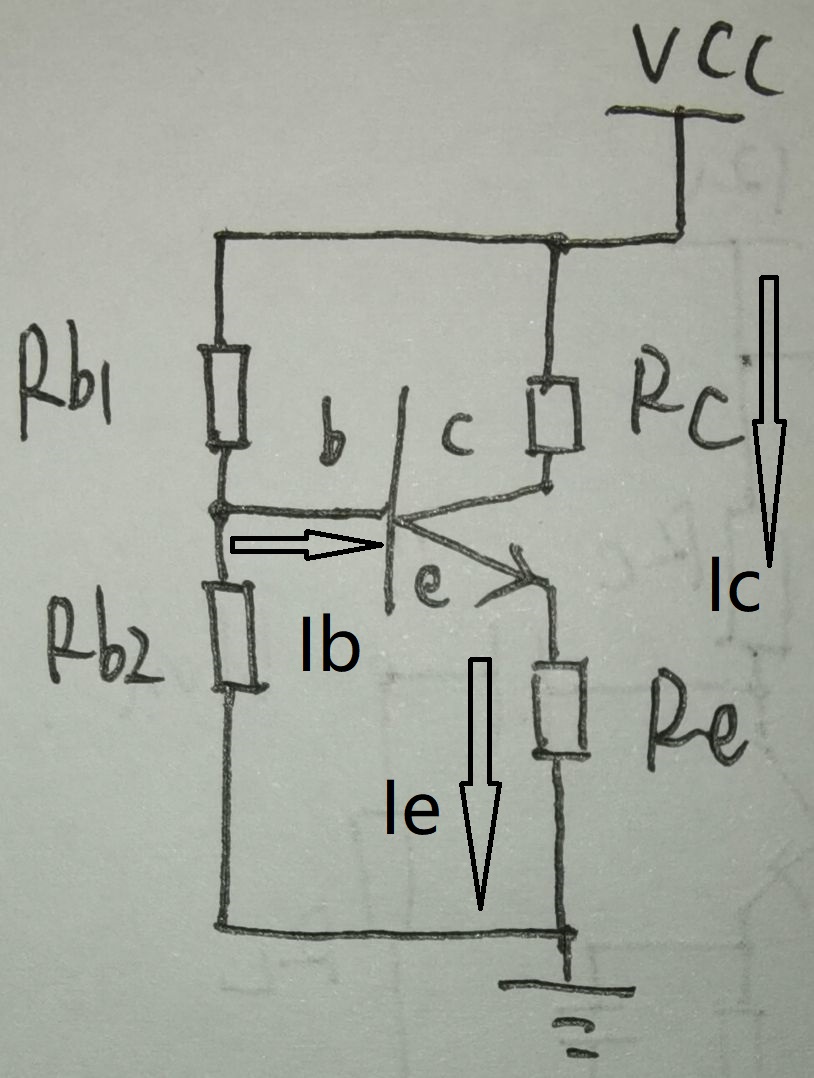 VCC
Rb1
b
c
Rc
e
Ic
Rb2
Ib
Re
Ie